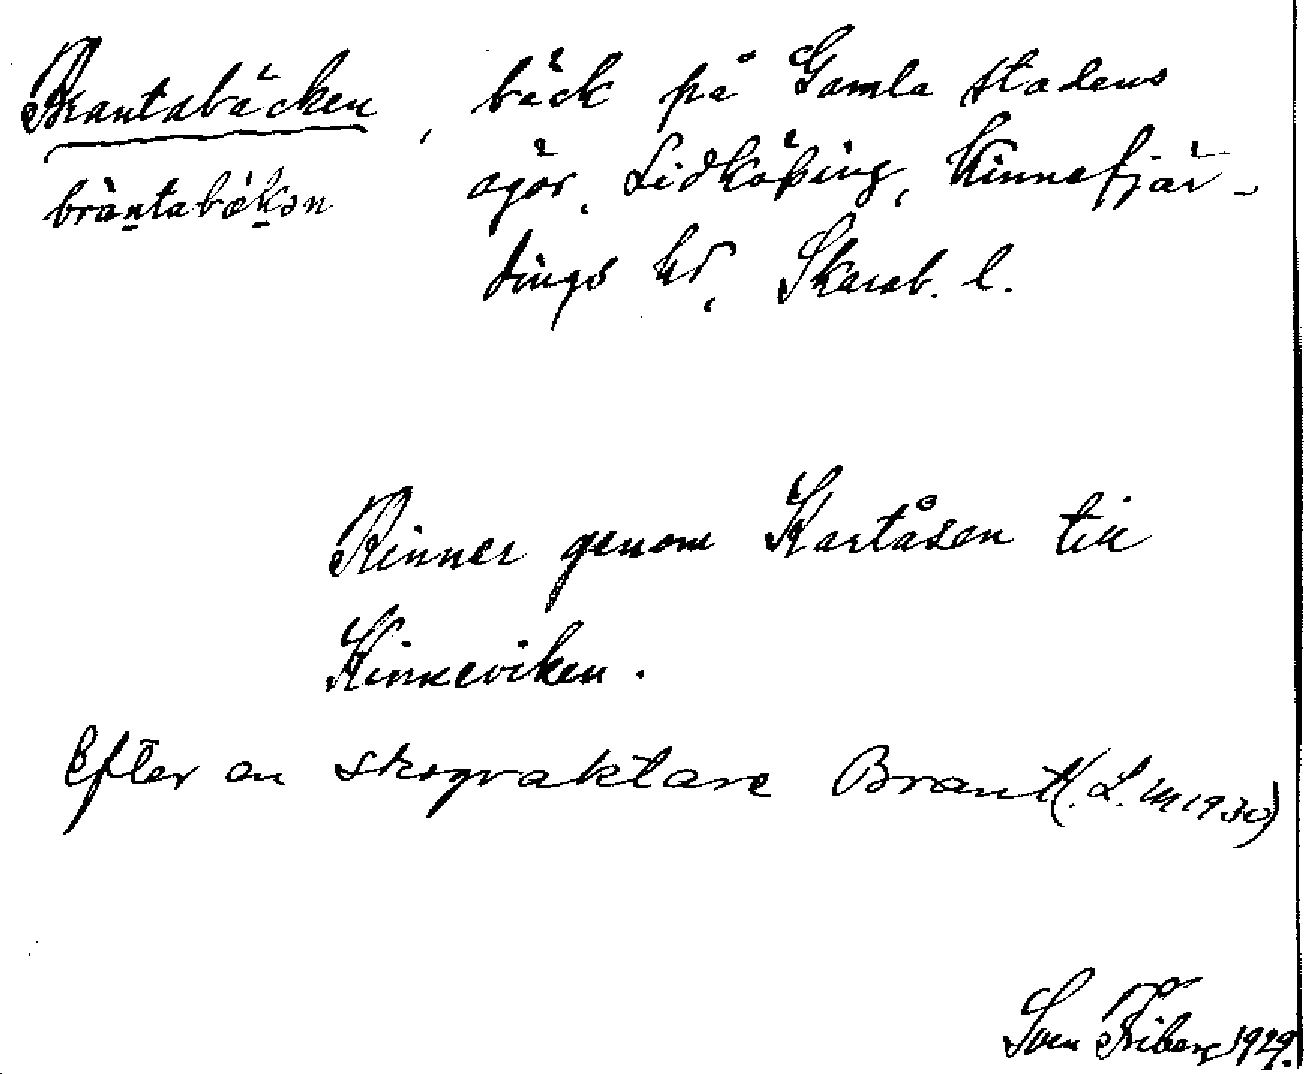 Brantabäcken, bäck på Gamla stadens
bràntabä́kən ägor, Lidköping, Kinnefjär-
dings hd, Skarab. l.
Rinner genom Kartåsen till
Kinneviken.
Efter en skogvaktare Brant (L. M 1930)
Sven Friberg 1929.